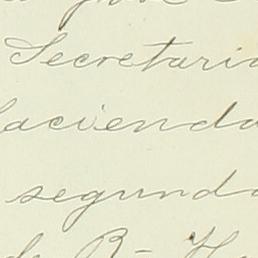 Secretaria
hacienda
segunda
de R- Ha